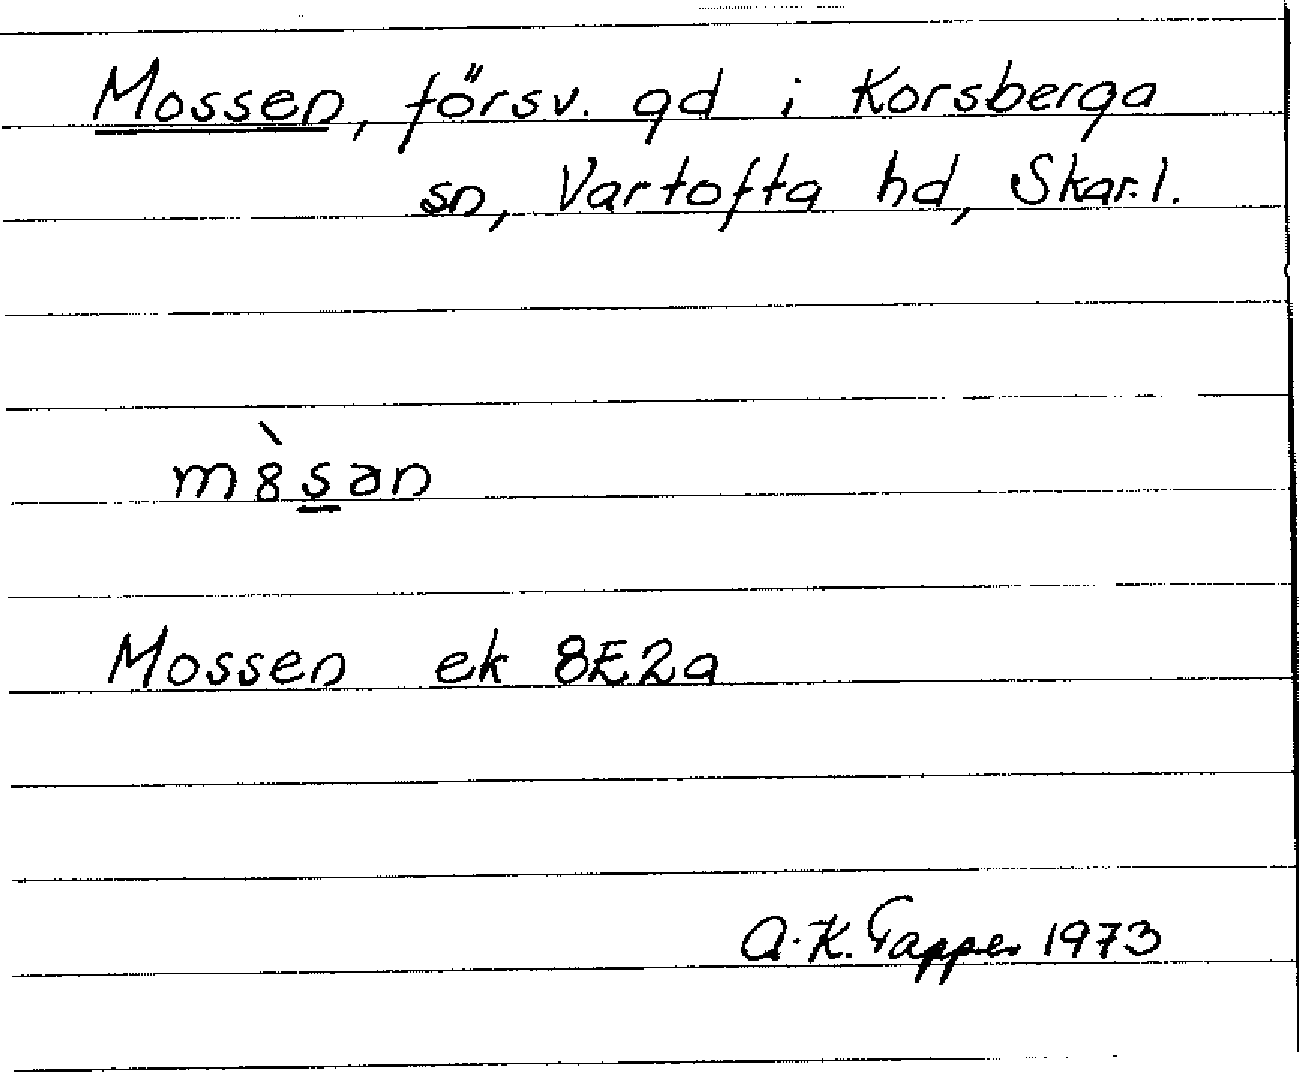 Mossen, försv. gd i Korsberga
sn, Vartofta hd, Skar.l.
m8̀s̲ən
Mossen ek 8E2a
A.K. Tapper 1973